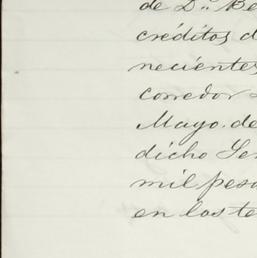 de D.ⁿ Be
créditos d
necientes
corredor
Mayo. de
dicho Señ
mil peso
en los te